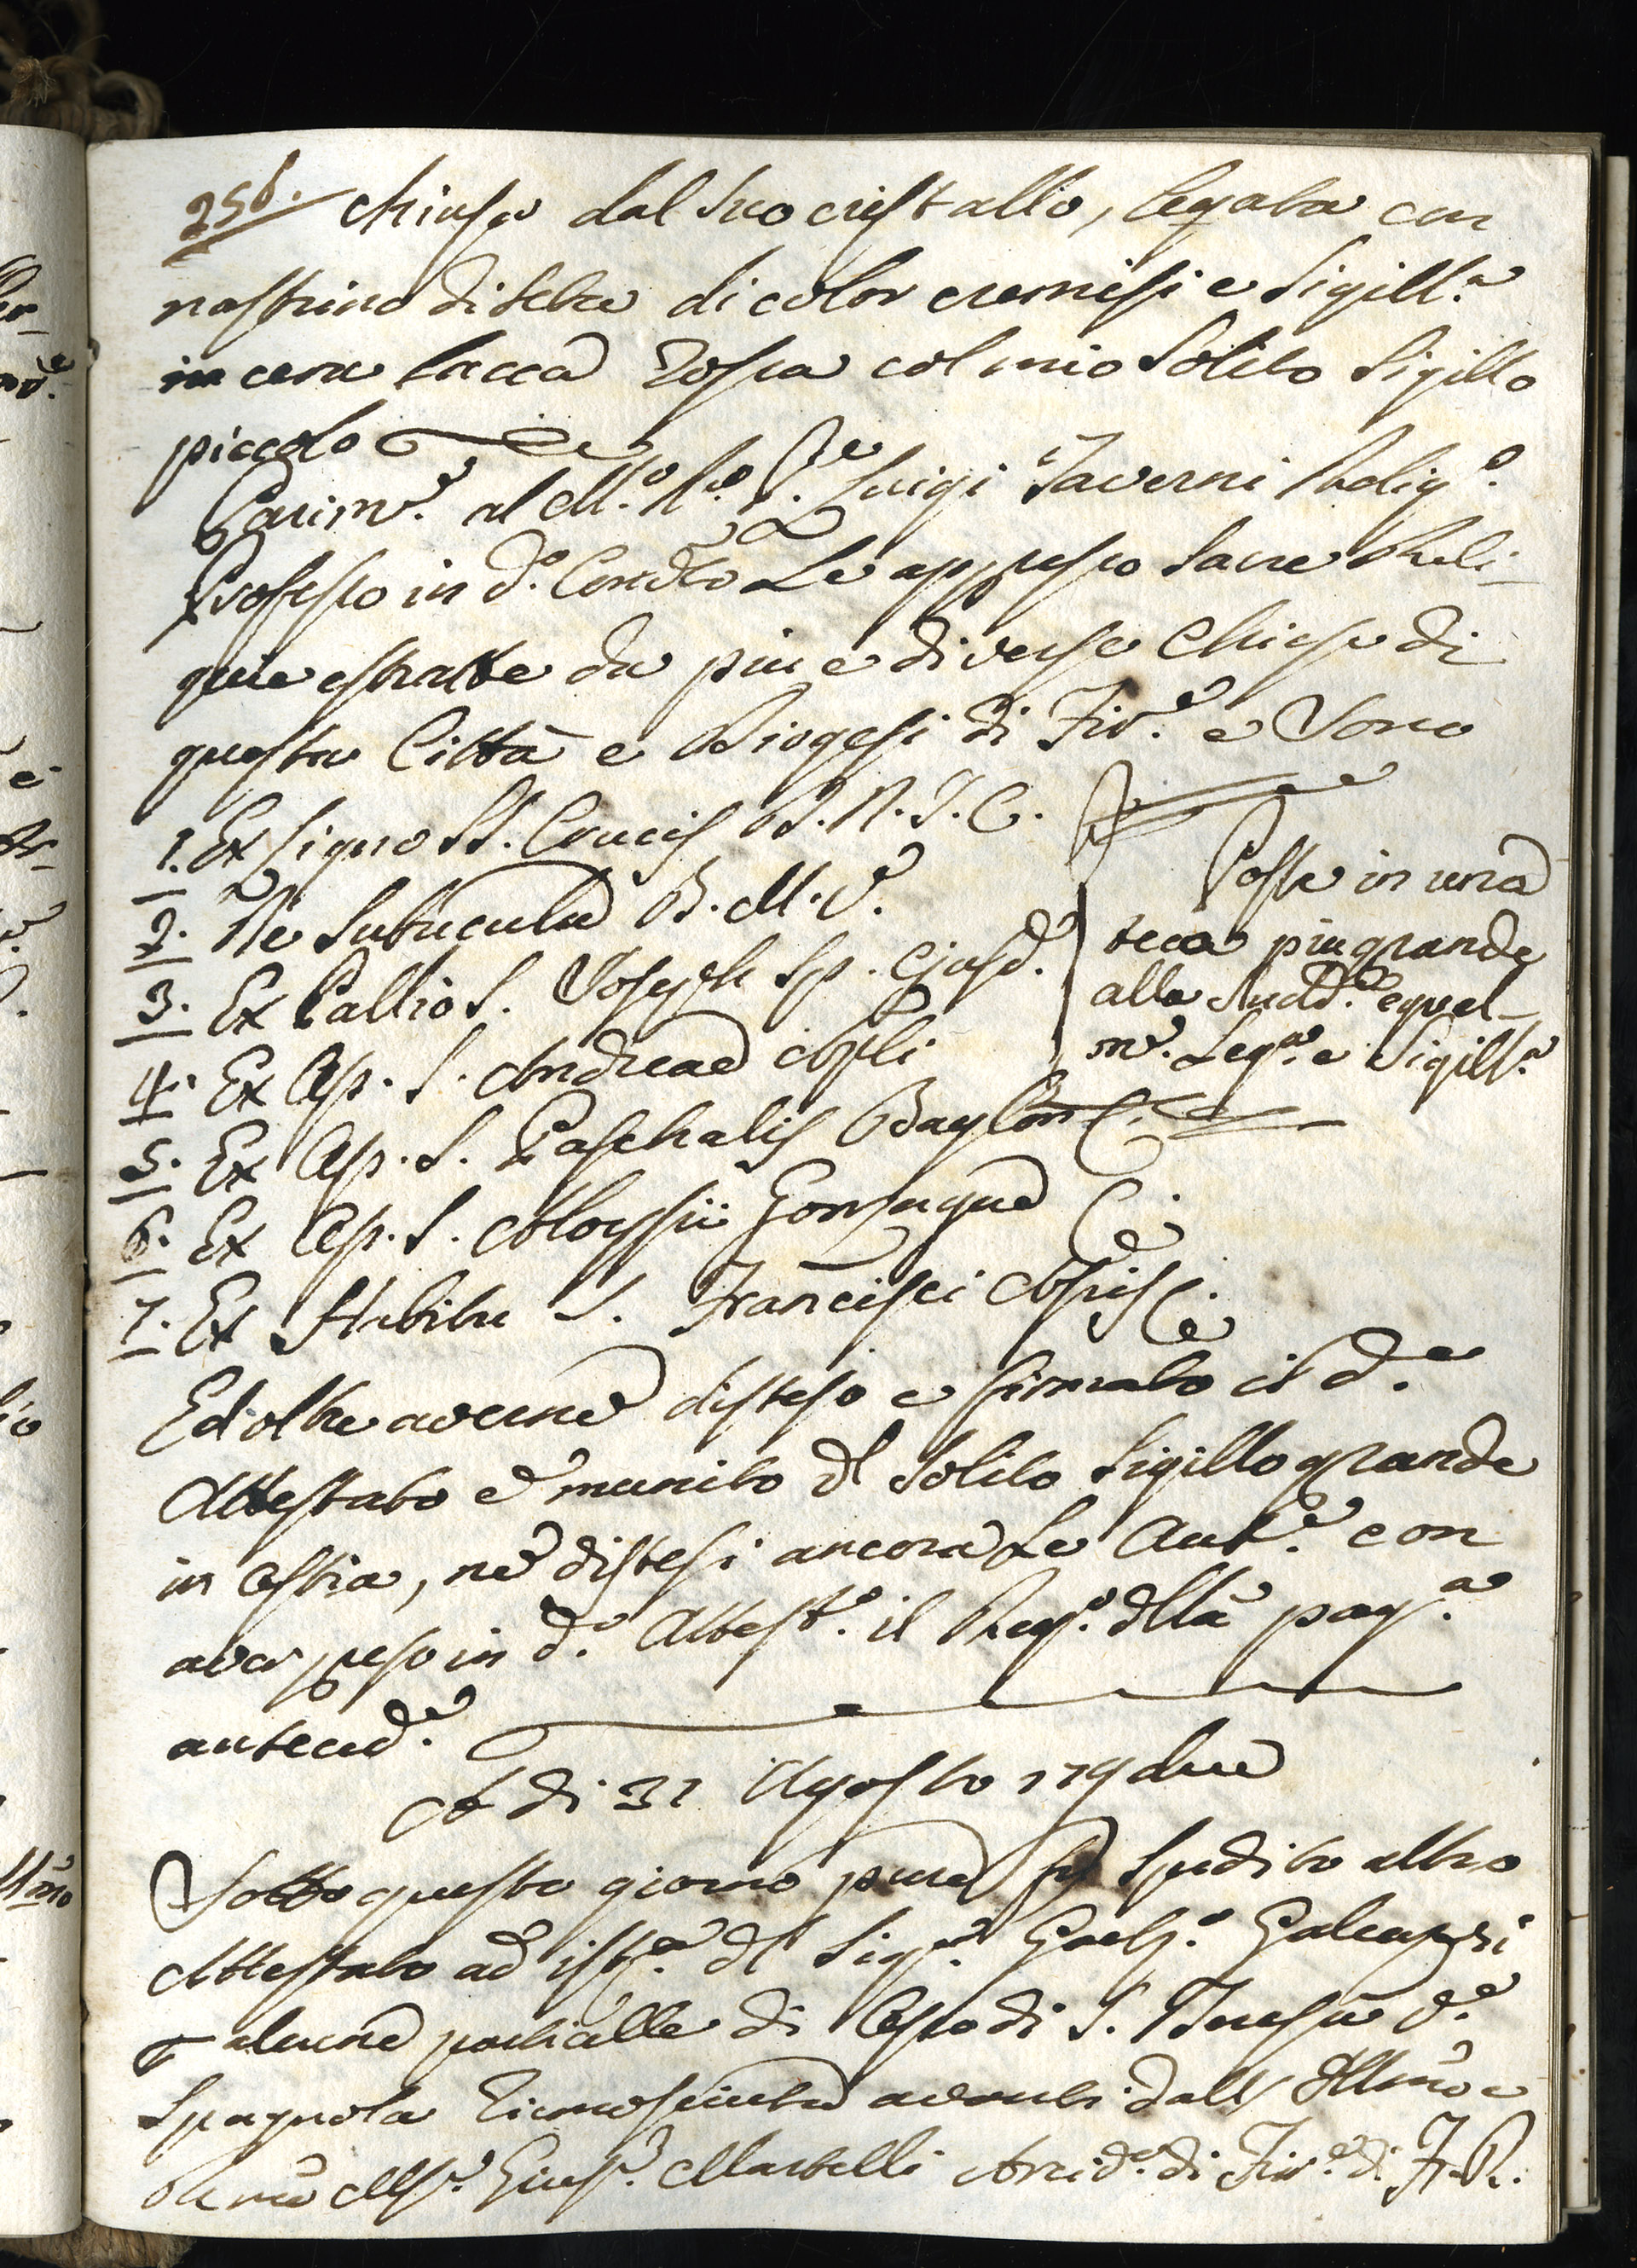 256. chiusa dal suo cristallo, legata con
nastrino di seta di color cremisi e Sigill.ª
in cera lacca Rossa col mio Solito Sigillo
piccolo
Parim.e al M.º R.º P. Luigi Taverni Relig.º
Professo in d.º Condto Le appresso Sacre Reli-
quie estratte da piu e diverse Chiese di
questa Città e Diogesi di Fir.e e Sono
1. Ex Ligno SS. Crucis D.N.J.C.
2. De Subucula B.M.V.
3. Ex Pallio S. Joseph Sp. Ejusd.
4. Ex Oss. S. Andreae Apli
5. Ex Oss. S. Paschalis Baylon C.
6. Ex Oss. S. Aloysii Gonzagae C.
7. Ex Habitu S. Francisci Assis C.
Poste in una
teca piu grande
alla Sudd.ª equal-
m.e Leg.ª e Sigill.ª
Ed oltre averne disteso e firmato il d.
Attestato e munito dl Solito Sigillo grande
in Ostia, ne distesi ancora Le Aut.e con
aver preso in d.º Attest.º il Reg.º dlla pag.ª
anteced.e
A di 31 Agosto 179due
Sotto questo giorno pure fu Spedito altro
Attestato ad ist.ª dl Sig.r Gaet.º Galeazzi
alcune particelle di Osso di S. Teresa d.ª
Spagnola riconosciuta avanti dall Illmo e
Rmo Mr. Gius.e Martelli Arcid.º di Fir.e di F. R.